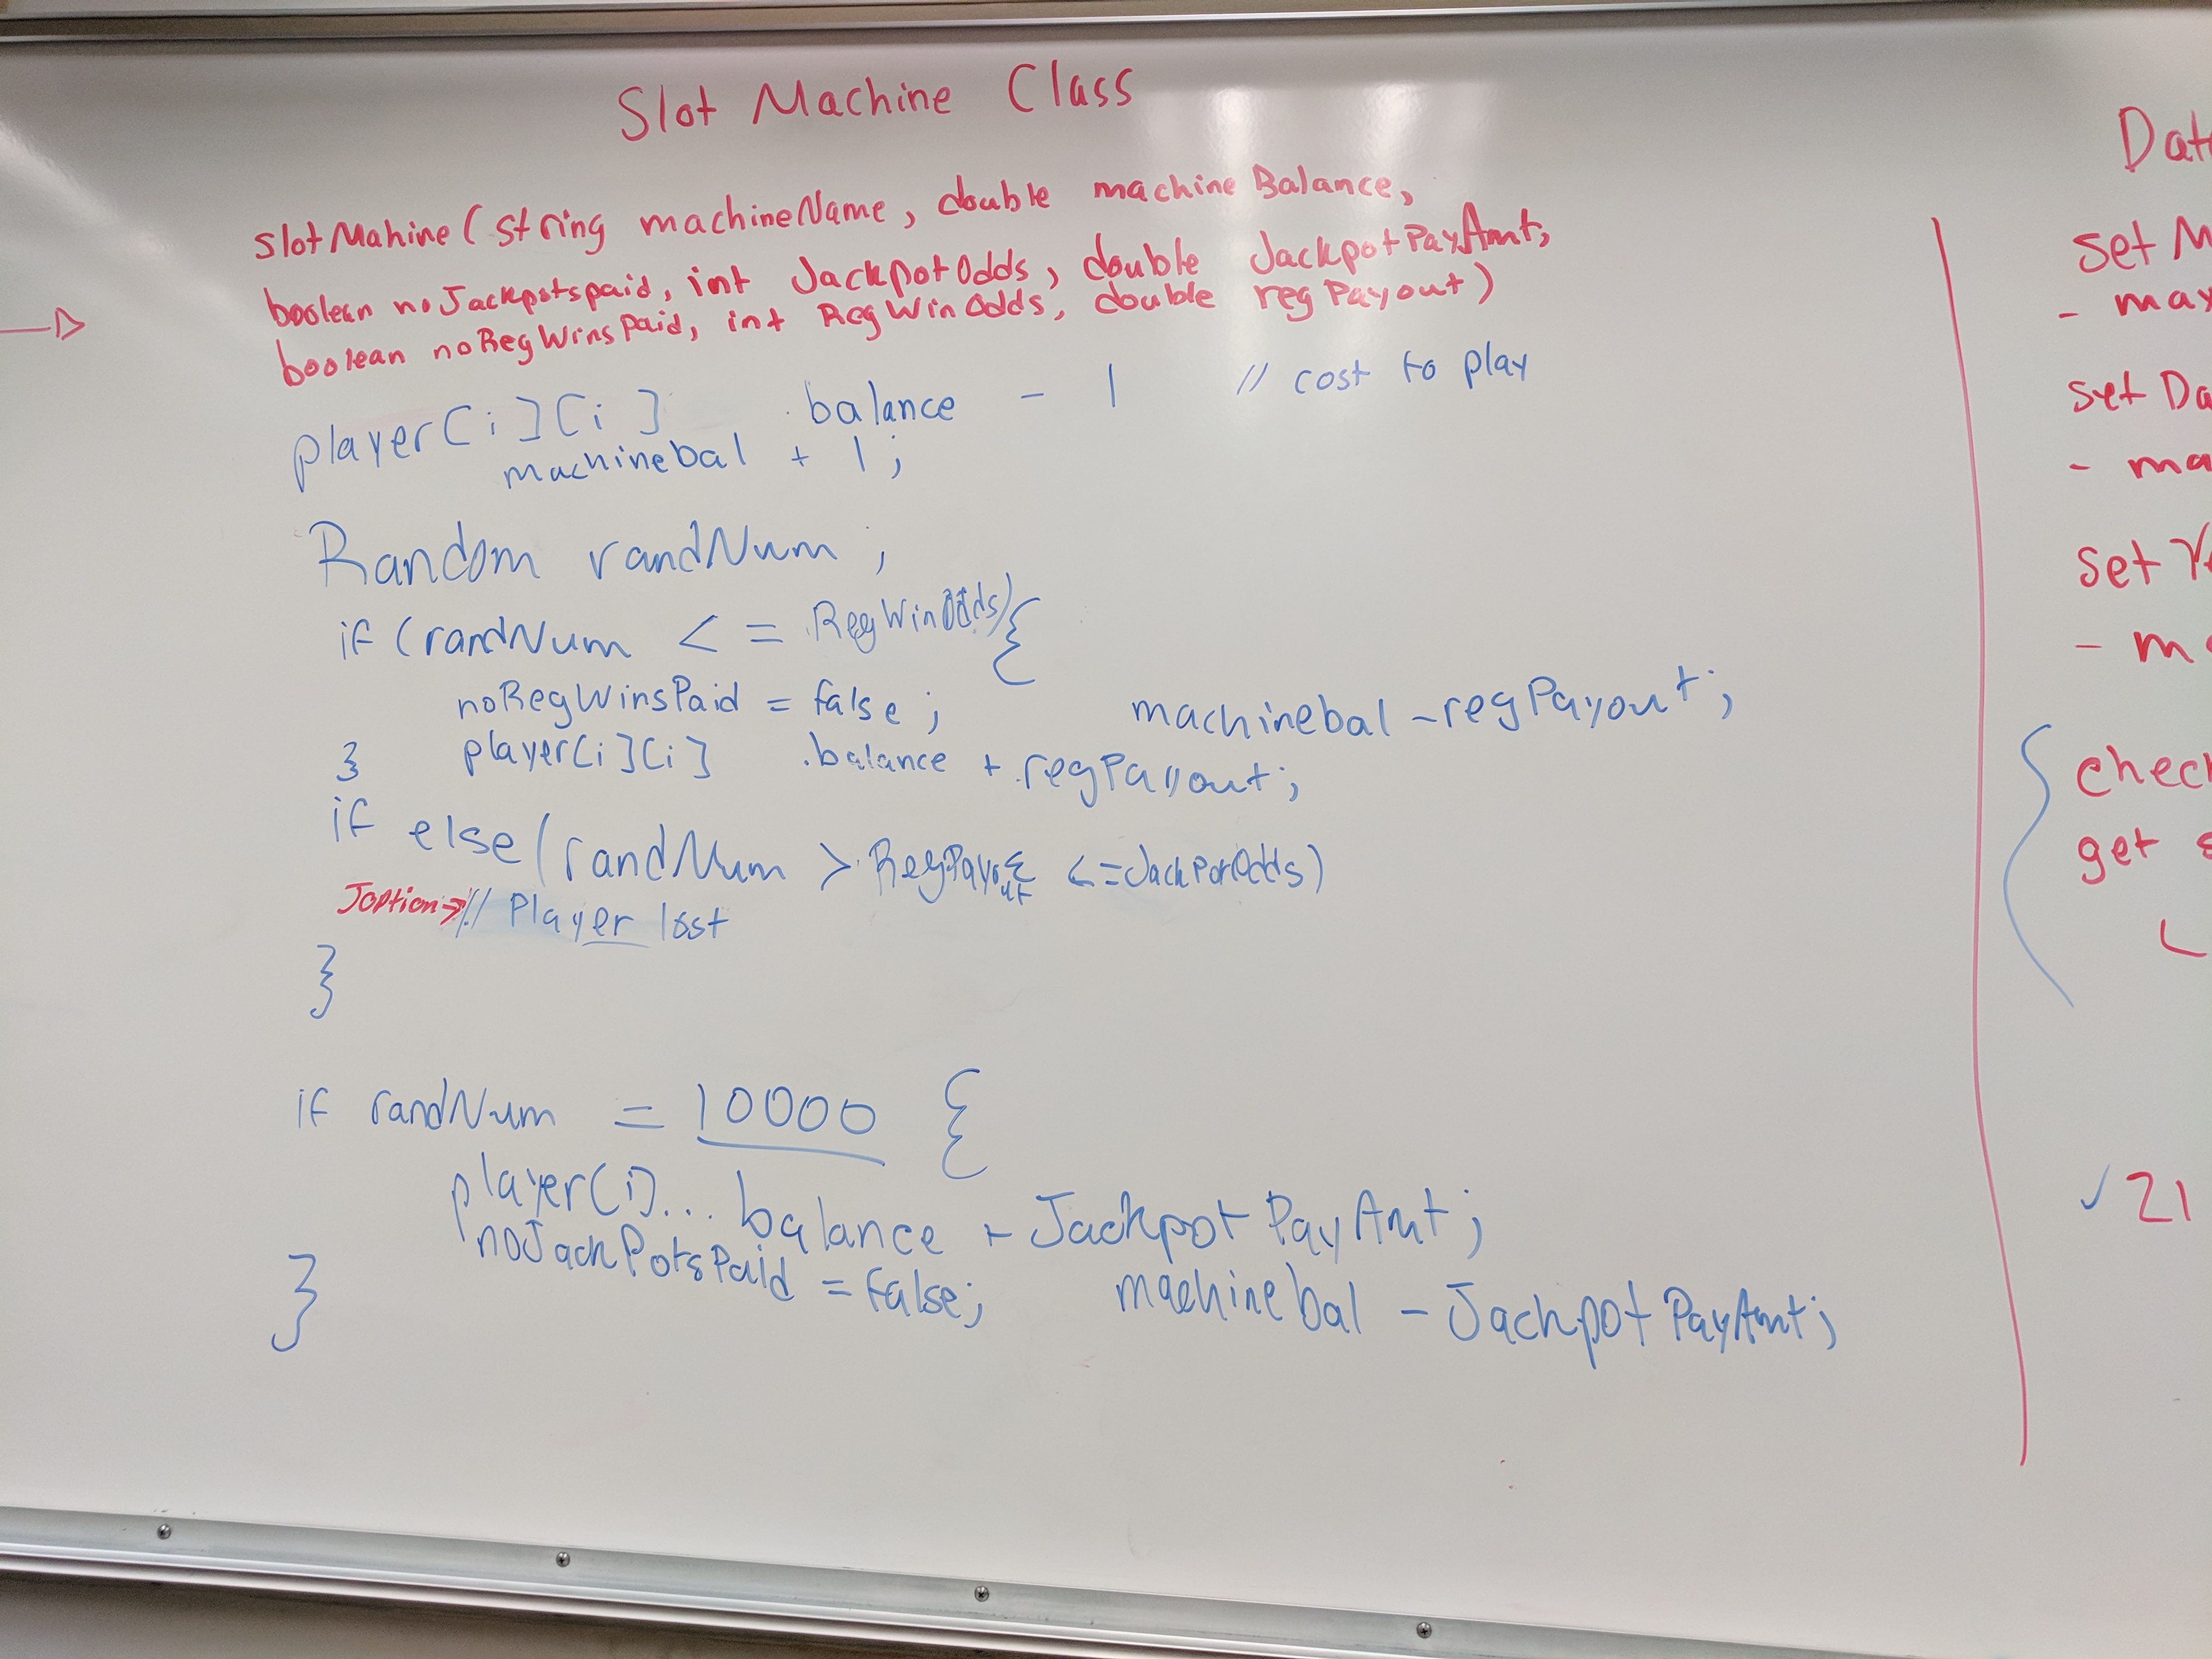 Slot Machine Class
slotMahine (string machineName, double machineBalance,
boolean noJackpotspaid, int JackpotOdds, double JackpotPayAmt,
boolean noRegWinsPaid, int RegWinOdds, double regPayout)
player[i][i] .balance - 1 // cost to play
machinebal + 1;
Random randNum;
if (randNum <= RegWinOdds) {
noRegWinsPaid = false; machinebal - regPayout;
} player[i][i] .balance + regPayout;
if else (randNum > RegPayout & <= JackPotOdds)
Joption→ // Player lost
}
if randNum = 10000 {
player[i]... balance + JackpotPayAmt;
noJackPotsPaid = false; machinebal - JackpotPayAmt;
}
Dat
set M
- may
set Da
- ma
set Y
- m
check
get
✓ 21